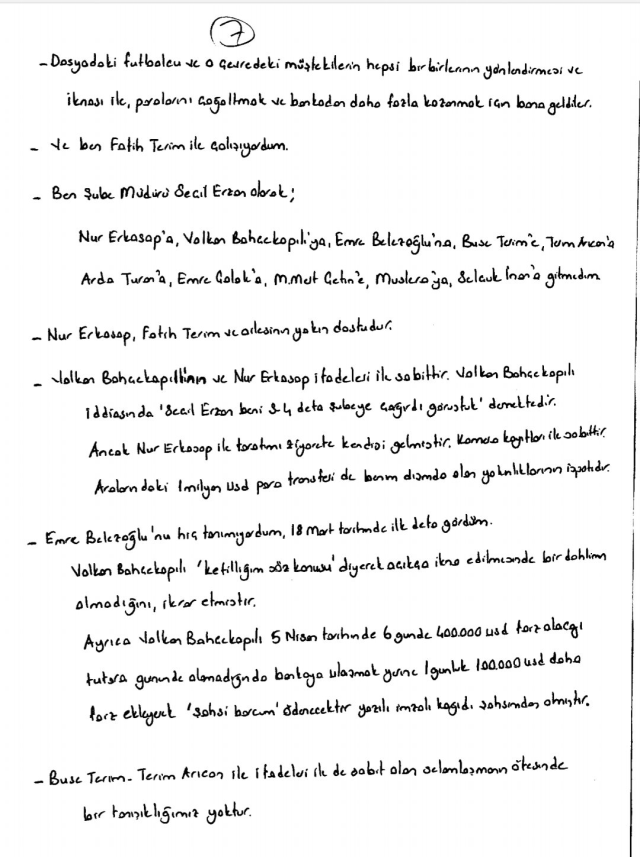 7
- Dosyadaki futbolcu ve o çevredeki müştekilerin hepsi birbirlerinin yönlendirmesi ve
iknası ile, paralarını çoğaltmak ve bankadan daha fazla kazanmak için bana geldiler.
- Ve ben Fatih Terim ile çalışıyordum.
- Ben Şube Müdürü Seçil Erzan olarak;
Nur Erkasap'a, Volkan Bahçekapılı'ya, Emre Belezoğlu'na, Buse Terim'e, Terim Arıcan'a
Arda Turan'a, Emre Çolak'a, M.Mert Çetin'e, Muslera'ya, Selçuk İnan'a gitmedim
- Nur Erkasap, Fatih Terim ve ailesinin yakın dostudur.
- Volkan Bahçekapılı'nın ve Nur Erkasap ifadeleri ile sabittir. Volkan Bahçekapılı
iddiasında 'Seçil Erzan beni 3-4 defa şubeye çağırdı görüştük' demektedir.
Ancak Nur Erkasap ile tarafımı ziyarete kendisi gelmiştir. Kamera kayıtları ile sabittir.
Aralarındaki 1 milyon usd para transferi de benim dışımda olan yakınlıklarının ispatıdır.
- Emre Belezoğlu'nu hiç tanımıyordum, 18 Mart tarihinde ilk defa gördüm.
Volkan Bahçekapılı 'kefilliğim söz konusu' diyerek açıkça ikna edilmesinde bir dahlim
olmadığını, ikrar etmiştir.
Ayrıca Volkan Bahçekapılı 5 Nisan tarihinde 6 günde 400.000 usd farz olacağı
tutarı gününde alamadığında bankaya ulaşmak yerine 1 günlük 100.000 usd daha
farz ekleyerek 'şahsi borcum' ödenecektir yazılı imzalı kağıdı şahsımdan almıştır.
- Buse Terim - Terim Arıcan ile ifadeleri ile de sabit olan selamlaşmanın ötesinde
bir tanışıklığımız yoktur.